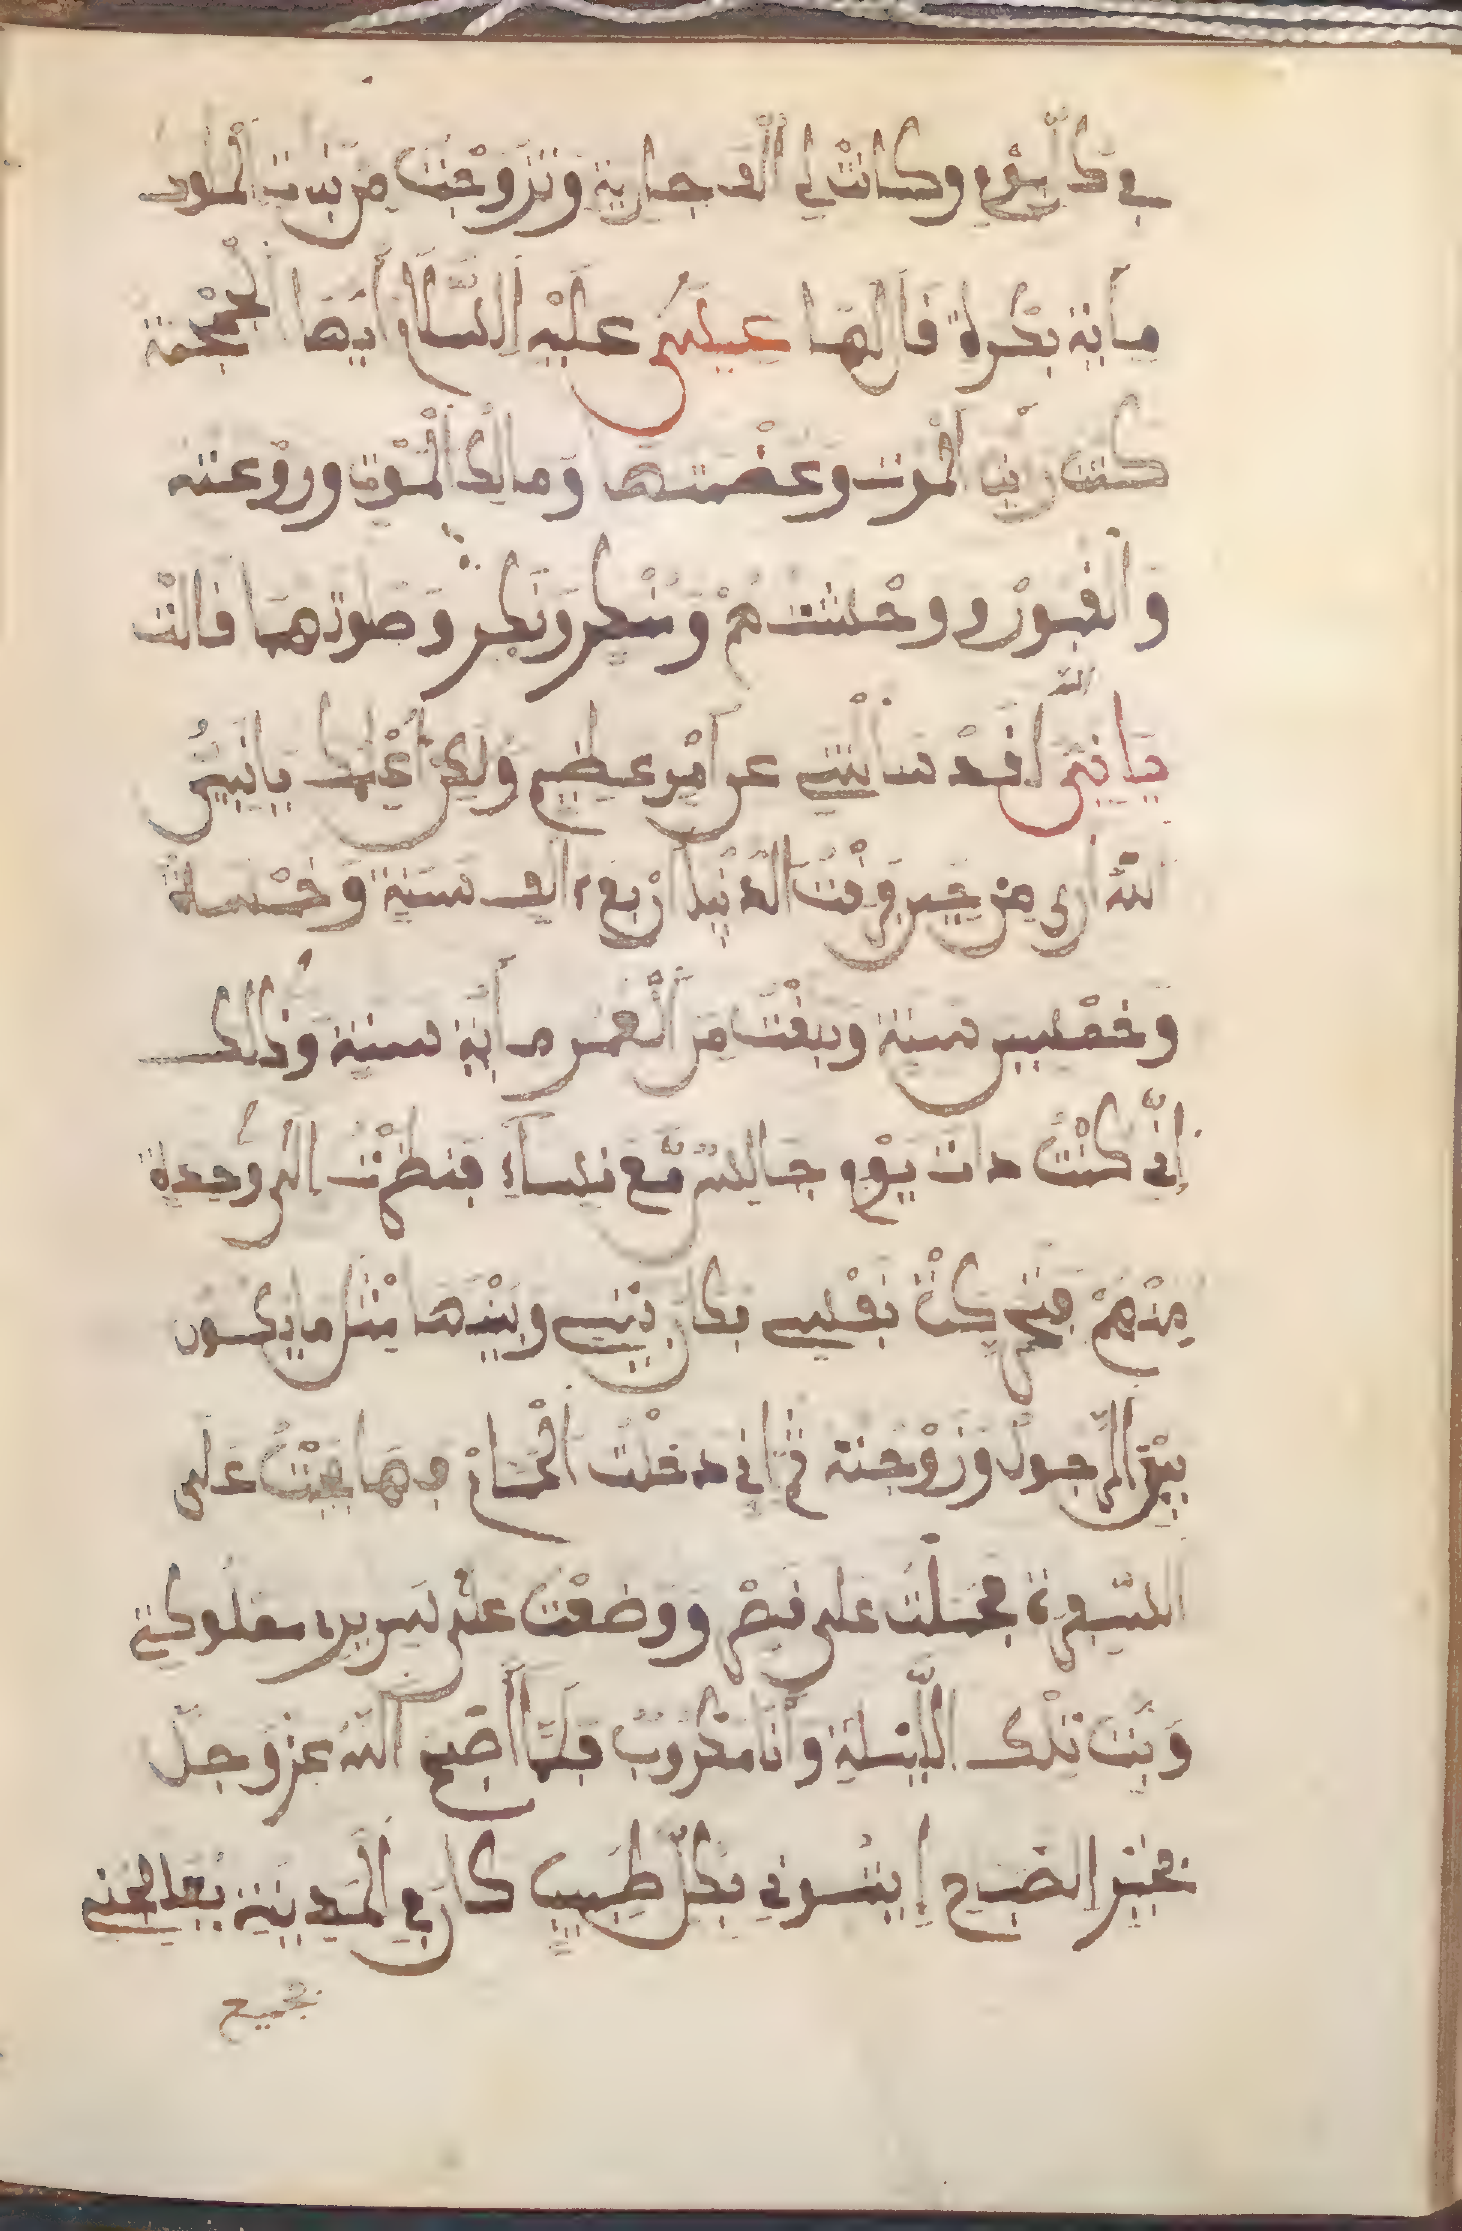 في كلّ يوْم وكانتْ لي ألف جارية وتزوجْت من بنات الملوك
مأية بكراة قال لها عيسى عليْه السّلام أيّها الجمْجمة
كيف رأيت الموت وغصْصتها ومالك الموْت وروْعته
والقبورْ ووحْشتهمْ ومنْكر ونكير وصوتهما فالتْ
يا نبيّ الله لقدْ سألْتني عن أمْر عظيم ولكن أعْلمك يا نبيّ
الله اني من حين فرقْت الدّنْيا أرْبع الف سنة وخمْسة
وخمْسين سنة وبلغْت من العمر مأية سنة وذالك
إنّي كنْت ذات يوْم جالسة مّع نساء فنظرْت الى وحدة
منْهمْ فتحركتْ بقلْبي فكان بيْني وبيْنها مثْل ما يكون
بيْن الرّجول وزوْجته ثم اني دخلْت الحْمام وها بجيْت على
السّفرة فحملْت على نبض ووضعْت على سرير مملوكتي
وبت تلْك اللّيْلة وأنا مكْروب فلمّا أصْبح الله عز وجلّ
بخيْر الصّباح إيتوني بكلّ طبيب كان في المدينة يعالجني
بجميع